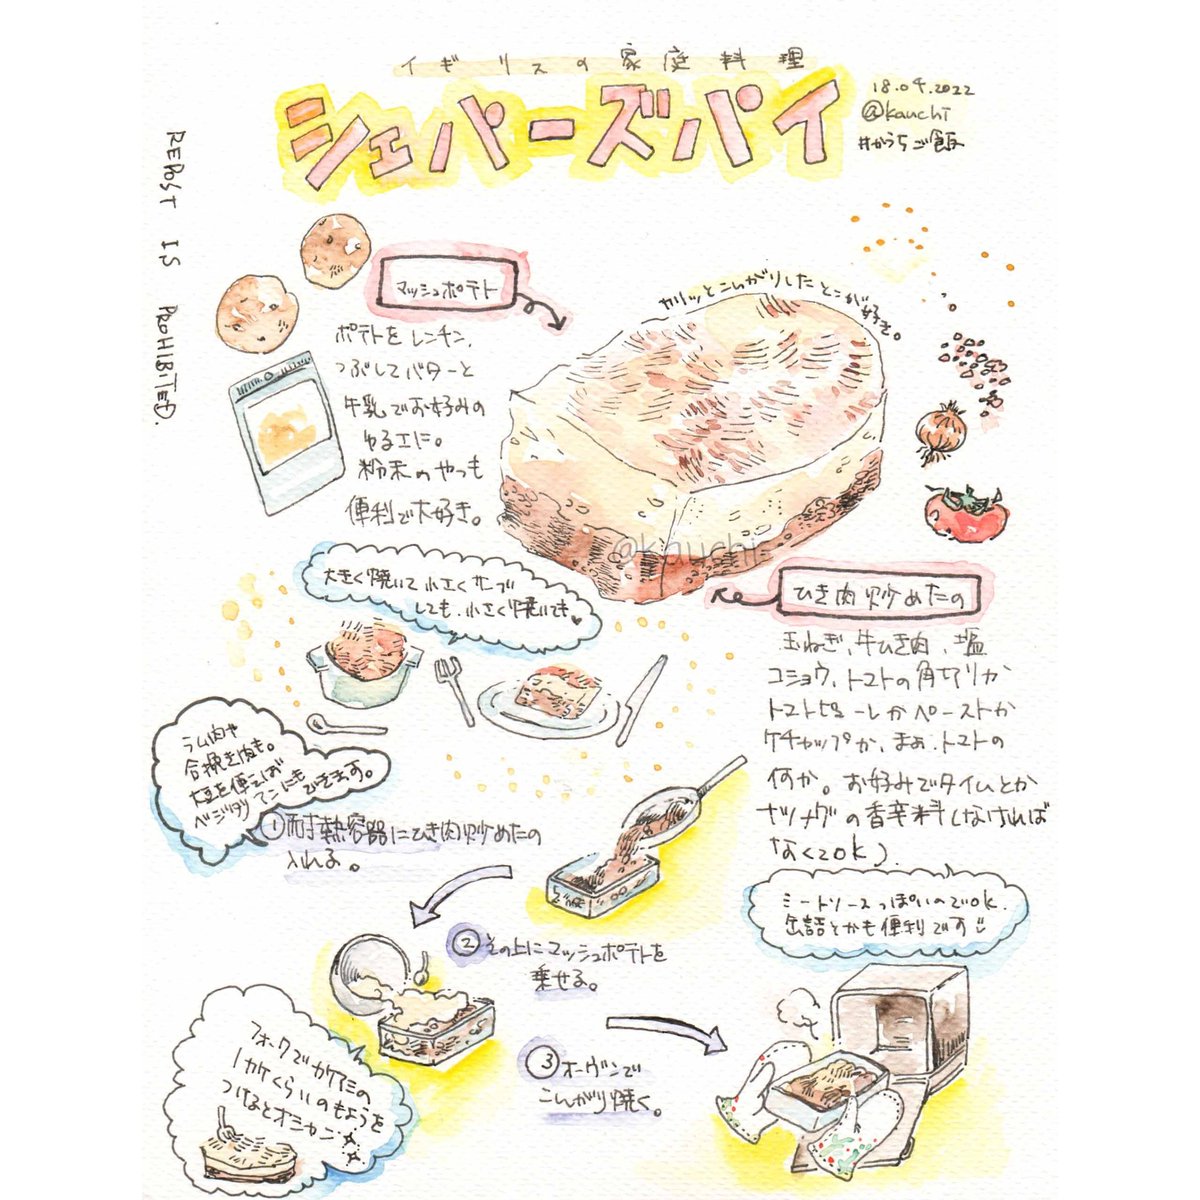 イギリスの家庭料理
シェパーズパイ
18.04.2022
@kauchi
#かうちご飯
REPOST IS PROHIBITED.
マッシュポテト
カリッとこんがりしたとこが好き。
ポテトをレンチン、
つぶしてバターと
牛乳でお好みの
ゆるさに。
粉末のやつも
便利で大好き。
@kauchi
大きく焼いて小さくサーブ
しても、小さく焼いても♥
ひき肉炒めたの
玉ねぎ、牛ひき肉、塩
コショウ、トマトの角切りか
トマトピューレかペーストか
ケチャップか、まぁ、トマトの
何か。お好みでタイムとか
ナツメグの香辛料(なければ
なくてok)
ラム肉や
合挽き肉も。
大豆を使えば
ベジタリアンにも
できます。
①耐熱容器にひき肉炒めたの
入れる。
ミートソースっぽいのでok.
缶詰とかも便利です
②その上にマッシュポテトを
乗せる。
③オーヴンで
こんがり焼く。
フォークでカケアミの
1カケくらいのもようを
つけるとオミャン☆